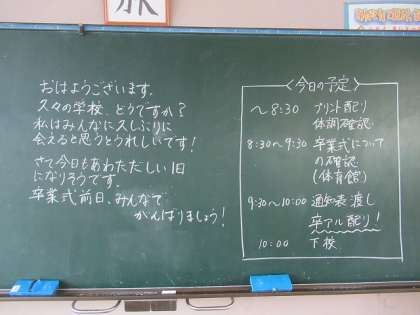 旅
おはようございます。
久々の学校、どうですか？
私はみんなに久しぶりに
会えると思うとうれしいです！
さて今日もあわただしい1日
になりそうです。
卒業式前日、みんなで
がんばりましょう！
〈今日の予定〉
〜8:30 プリント配り
体調確認
8:30〜9:30 卒業式について
の確認
(体育館)
9:30〜10:00 通知表渡し
卒アル配り！
10:00 下校